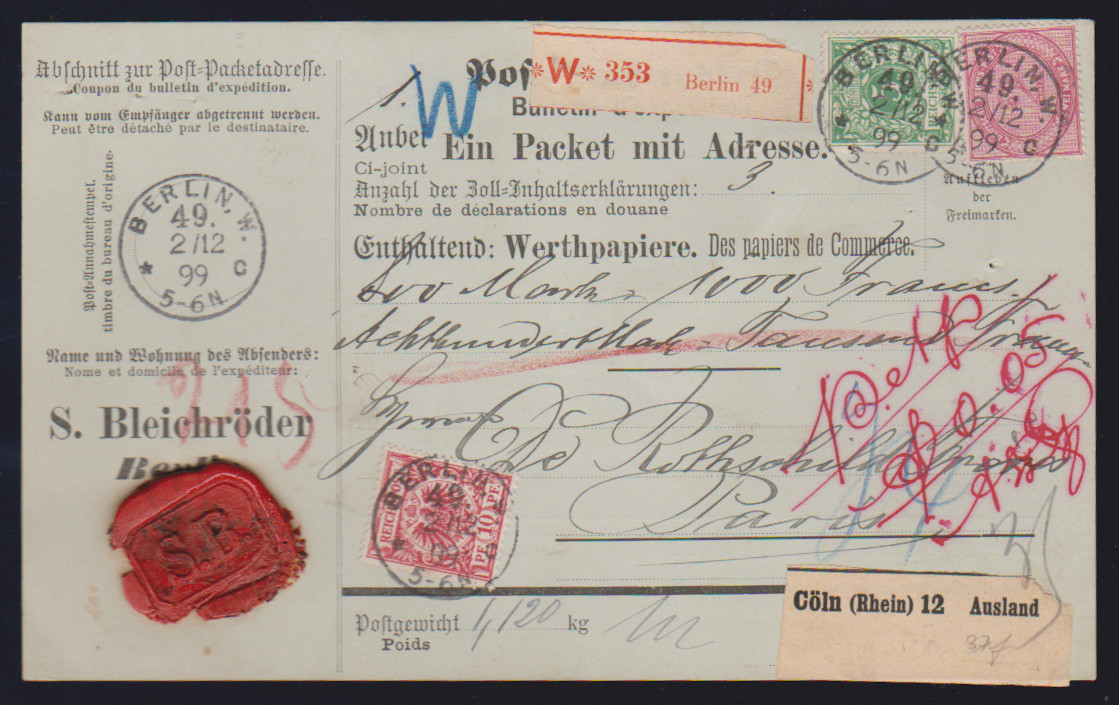 Abschnitt zur Post-Packetadresse.
Coupon du bulletin d'expédition.
Kann vom Empfänger abgetrennt werden.
Peut être détaché par le destinataire.
Post-Annahmestempel.
timbre du bureau d'origine.
BERLIN, W.
49.
2/12
99
* 5-6N c
Name und Wohnung des Absenders:
Nome et domicile de l'expéditeur:
S. Bleichröder
S.B.
*W* 353 Berlin 49
1.
W
Anbei Ein Packet mit Adresse.
Ci-joint
Anzahl der Zoll-Inhaltserklärungen: 3.
Nombre de déclarations en douane
Enthaltend: Werthpapiere. Des papiers de Commerce.
800 Mark 1000 Francs
Achthundert Mark Tausend
De Rothschild
Paris
BERLIN, W.
49.
2/12
99
* 5-6N c
BERLIN, W.
49.
2/12
99
* 5-6N c
REICHSPOST
Aufkleben
der
Freimarken.
REICHSPOST
10 PF
BERLIN, W.
49.
2/12
99
* 5-6N c
Postgewicht 1,120 kg
Poids
Cöln (Rhein) 12 Ausland
37